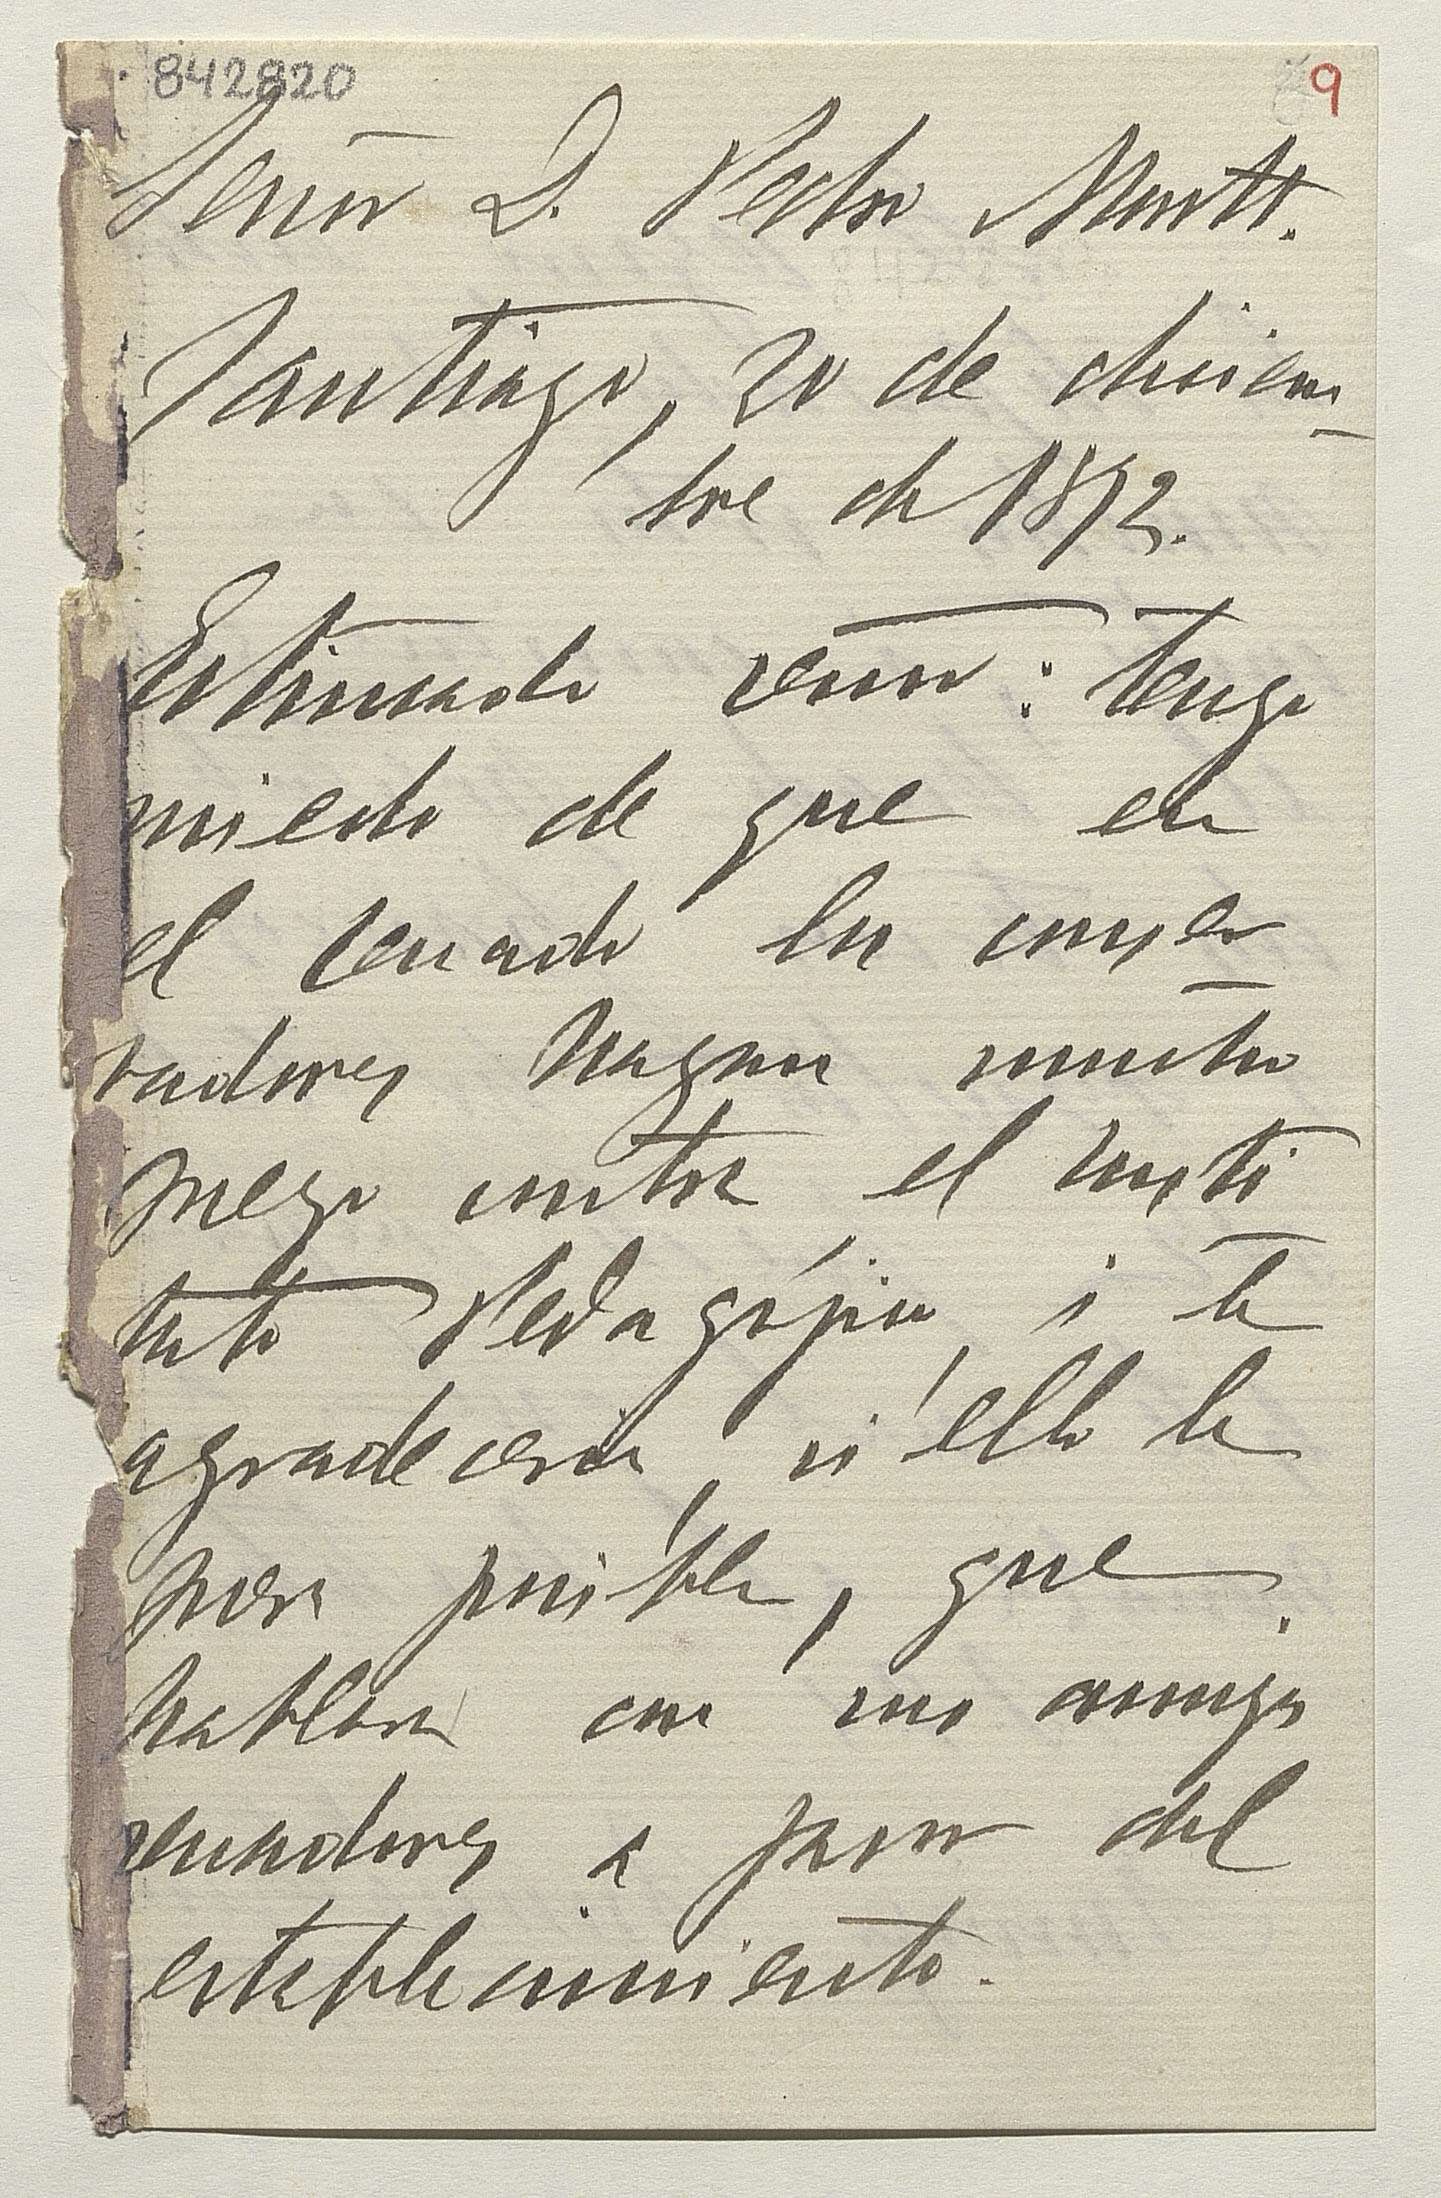 842820
9
Señor D. Pedro Montt.
Santiago, 20 de diciem-
bre de 1892.
Estimado señor: tengo
miedo de que en
el senado los conser
vadores hagan mucho
fuego contra el Insti
tuto Pedagójico, i le
agradeceria, si ello le
fuera posible, que
hablara con sus amigos
senadores a favor del
establecimiento.